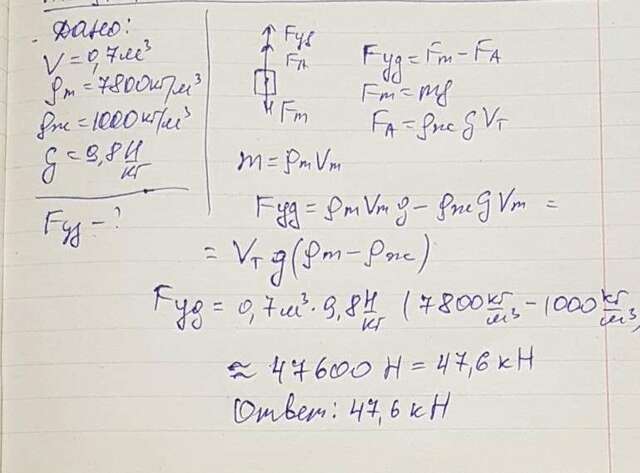 Дано:
V = 0,7 м³
ρт = 7800 кг/м³
ρж = 1000 кг/м³
g = 9,8 Н/кг
Fуд - ?
Fуд
FA
Fт
Fуд = Fт - FA
Fт = mg
FA = ρж g Vт
m = ρт Vт
Fуд = ρт Vт g - ρж g Vт =
= Vт g (ρт - ρж)
Fуд = 0,7 м³ · 9,8 Н/кг (7800 кг/м³ - 1000 кг/м³)
≈ 47600 Н = 47,6 кН
Ответ: 47,6 кН